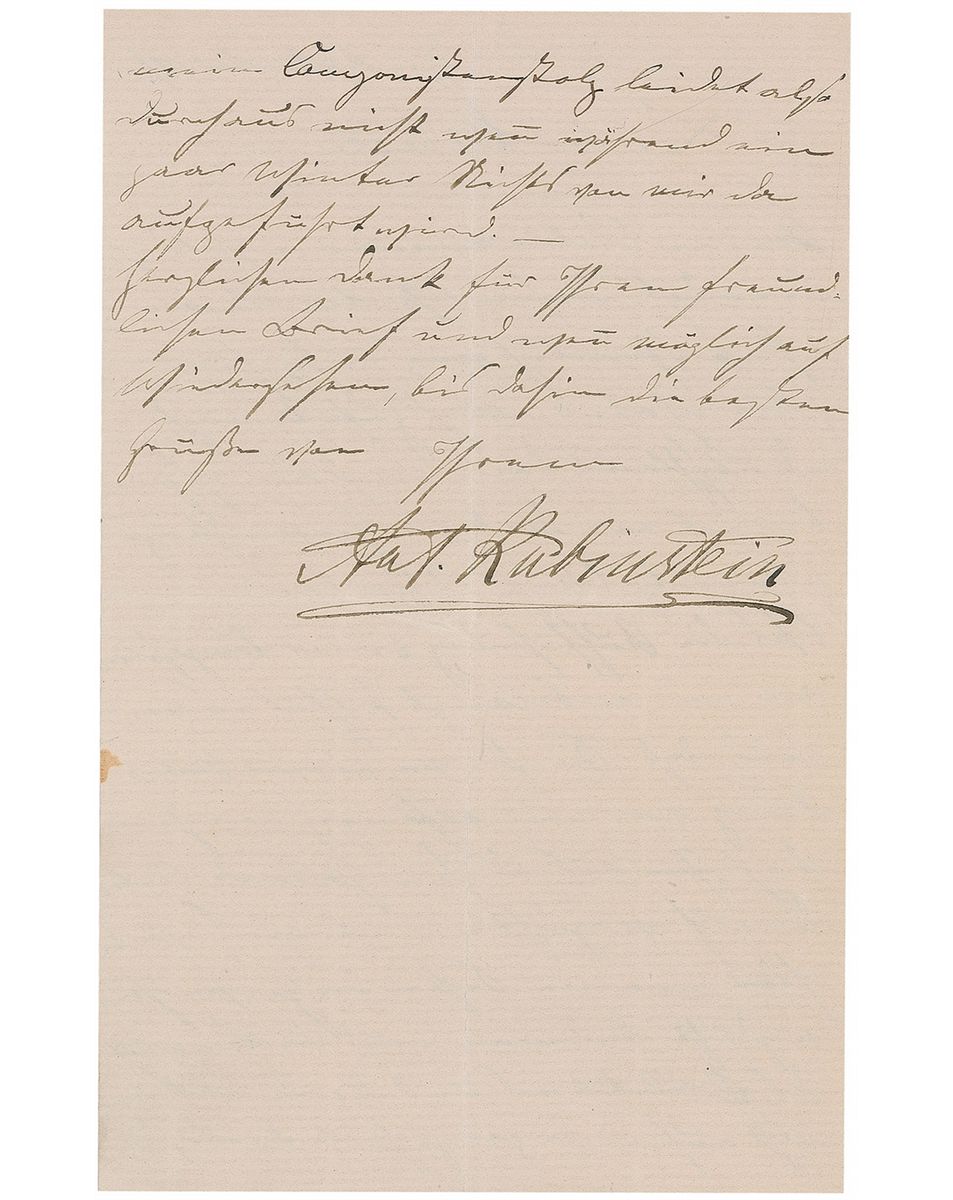 mein Componistenstolz leidet also
durchaus nicht weñ während ein
paar Winter Nichts von mir da
aufgeführt wird. —
Herzlichen Dank für Ihren freund-
lichen Brief und weñ möglich auf
Wiedersehen, bis dahin die besten
Grüße von Ihrem
Ant. Rubinstein